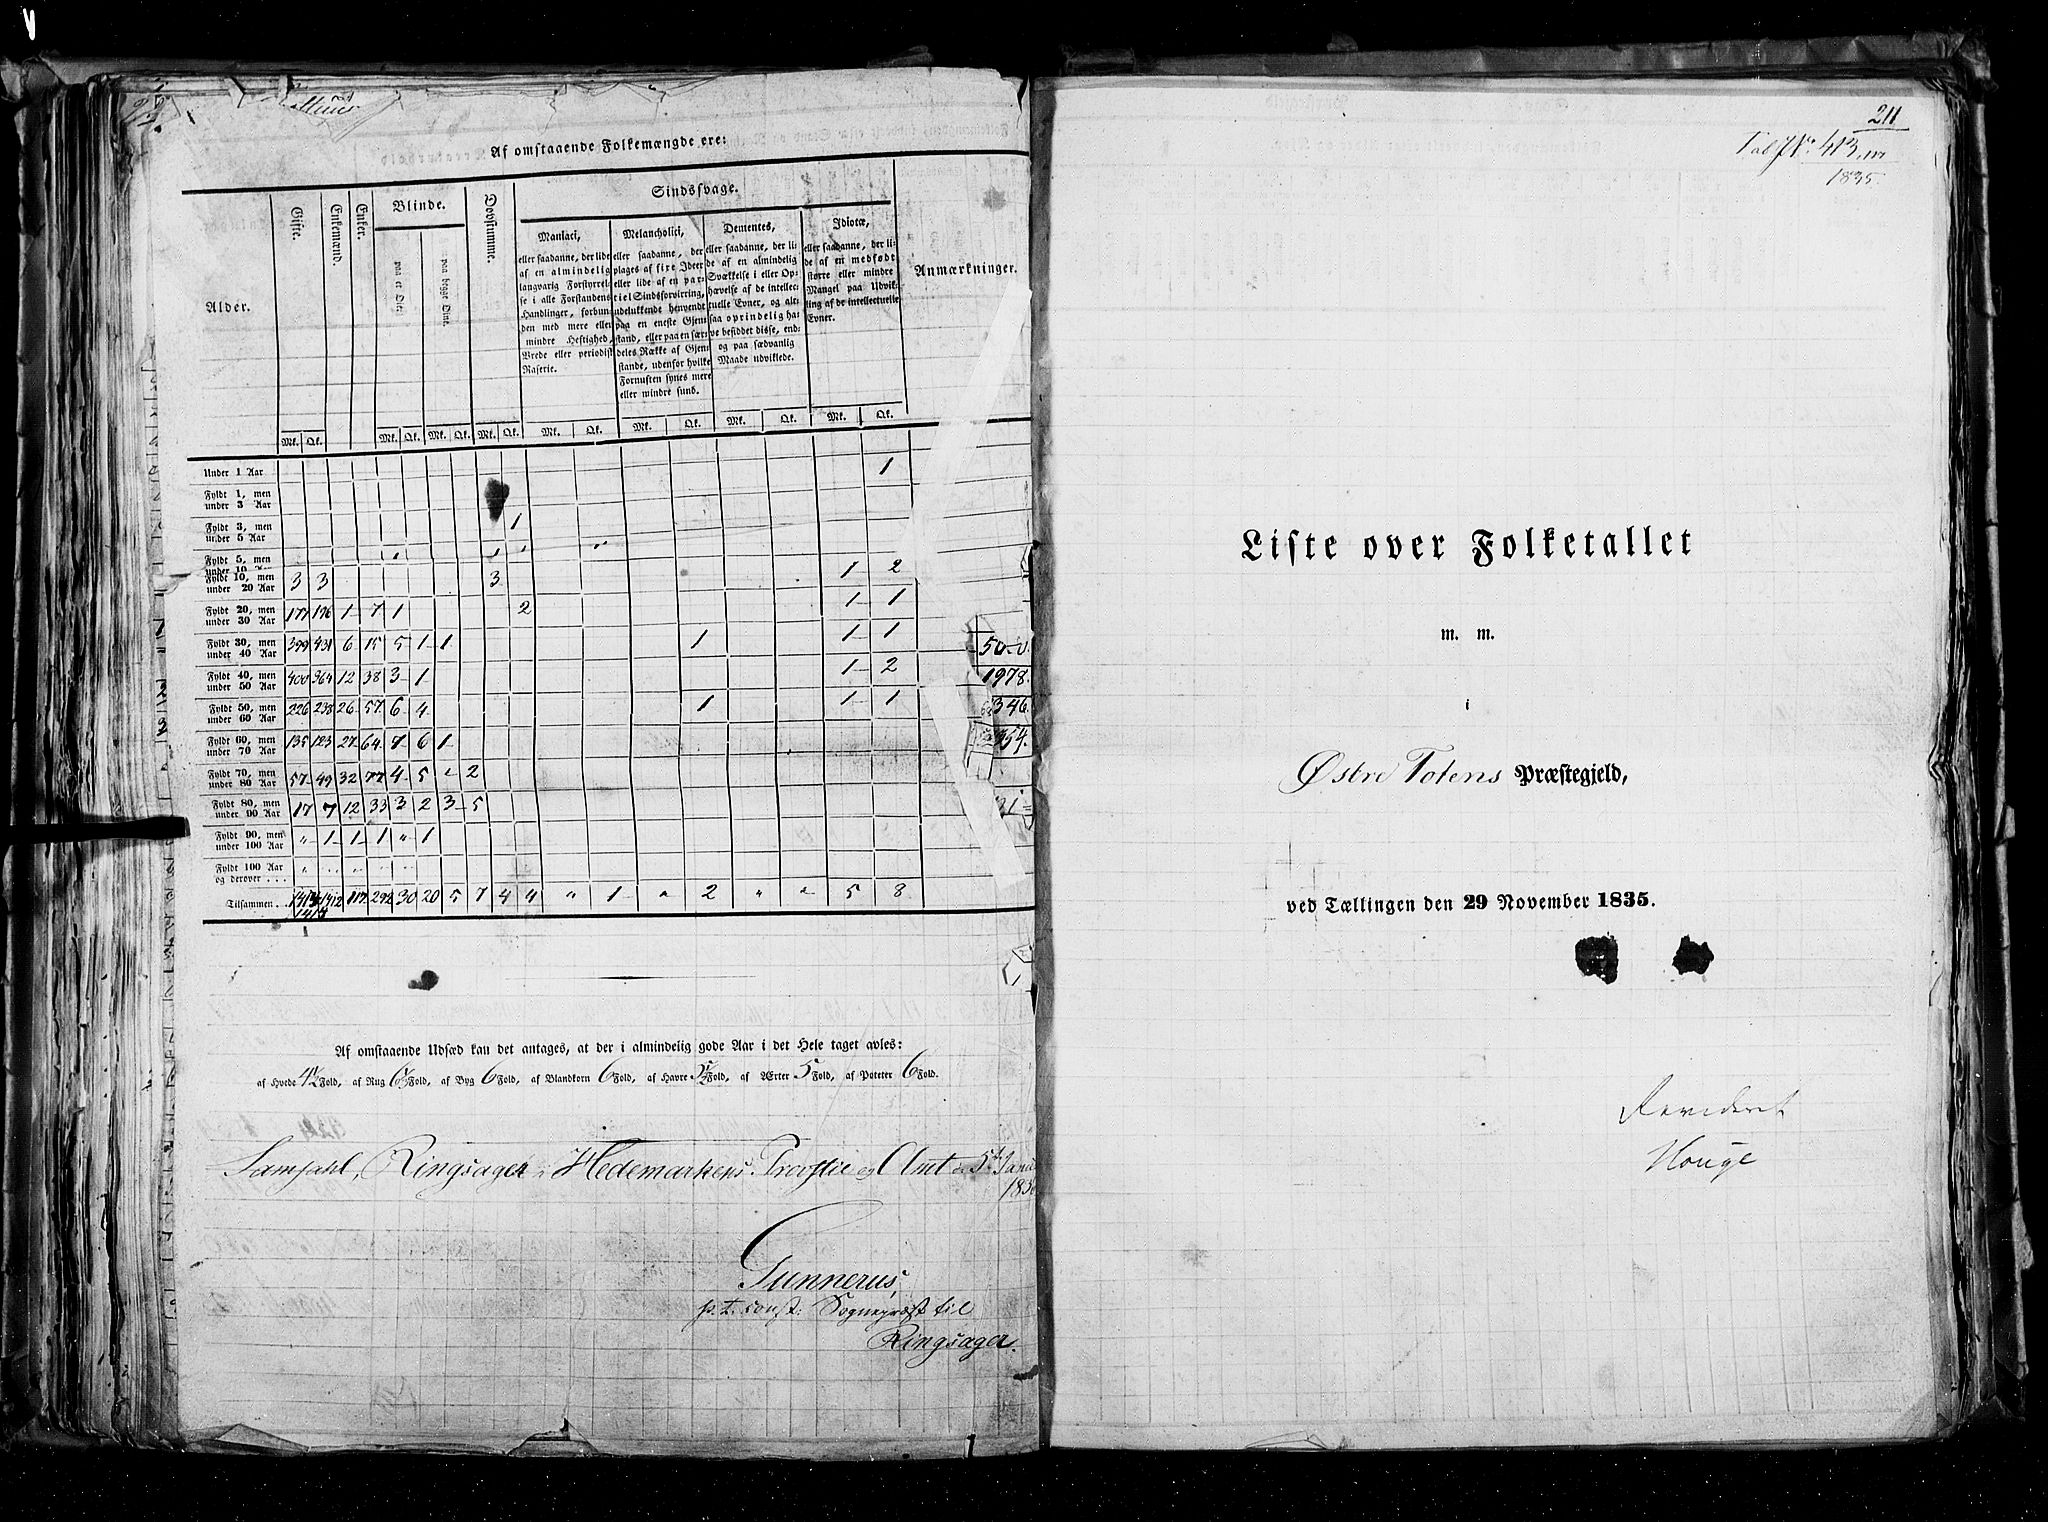 Af omstaaende Folkemængde ere:
Alder.
Gifte.
Enkemænd.
Enker.
Blinde.
paa et Øie.
paa begge Øine.
Døvstumme.
Sindssvage.
Maniaci,
eller saadanne, der lide
af en almindelig
langvarig Forstyrrel-
se i alle Forstandens
Handlinger, forbun-
den med mere eller
mindre Heftighed,
Vrede eller periodisk
Raserie.
Melancholici,
eller saadanne, der
plages af fixe Ideer
eller lide af en par-
tiel Sindsforvirring,
udelukkende henvendt
paa en eneste Gjen-
stand, eller paa en sær-
deles Række af Gjen-
stande, udenfor hvilke
Fornuften synes mere
eller mindre sund.
Dementes,
eller saadanne, der li-
de af en almindelig
Svækkelse i eller Op-
hævelse af de intellec-
tuelle Evner, og alt-
saa oprindelig ha-
ve besiddet disse, end-
og paa sædvanlig
Maade udviklede.
Idiotæ,
eller saadanne, der li-
de af en medfødt
større eller mindre
Mangel paa Udvik-
ling af de intellectuelle
Evner.
Anmærkninger.
Mk. Qk. Mk. Qk. Mk. Qk. Mk. Qk. Mk. Qk. Mk. Qk. Mk. Qk. Mk. Qk.
Under 1 Aar 1
Fyldt 1, men
under 3 Aar
Fyldt 3, men
under 5 Aar 1
Fyldt 5, men
under 10 Aar 1 1 1 "
Fyldt 10, men
under 20 Aar 3 3 3 1 2
Fyldt 20, men
under 30 Aar 177 196 1 7 1 2 1 1
Fyldt 30, men
under 40 Aar 399 431 6 15 5 1 1 1 1 1
Fyldt 40, men
under 50 Aar 400 364 12 38 3 1 1 2 1978.
Fyldt 50, men
under 60 Aar 226 238 26 57 6 4 1 1 1 346.
Fyldt 60, men
under 70 Aar 135 123 27 64 7 6 1
Fyldt 70, men
under 80 Aar 57 49 32 77 4 5 " 2
Fyldt 80, men
under 90 Aar 17 7 12 33 3 2 3 5
Fyldt 90, men
under 100 Aar " 1 1 1 " 1
Fyldt 100 Aar
og derover . . . " " " " " "
Tilsammen . . 1412 117 292 30 20 5 7 4 4 " 1 " 2 " " 5 8
1414
Af omstaaende Udsæd kan det antages, at der i almindelig gode Aar i det Hele taget avles:
af Hvede 4½ Fold, af Rug 6½ Fold, af Byg 6 Fold, af Blandkorn 6 Fold, af Havre 5½ Fold, af Ærter 5 Fold, af Poteter 6 Fold.
Ringsager i Hedemarkens Provstie og Amt d. 5te Janu
183
Gunnerus,
p. t. const: Sognepræst til
Ringsager.
211
Tab N° 413
1835.
Liste over Folketallet
m. m.
i
Østre Totens Præstegjeld,
ved Tællingen den 29 November 1835.
Revideret
Houge